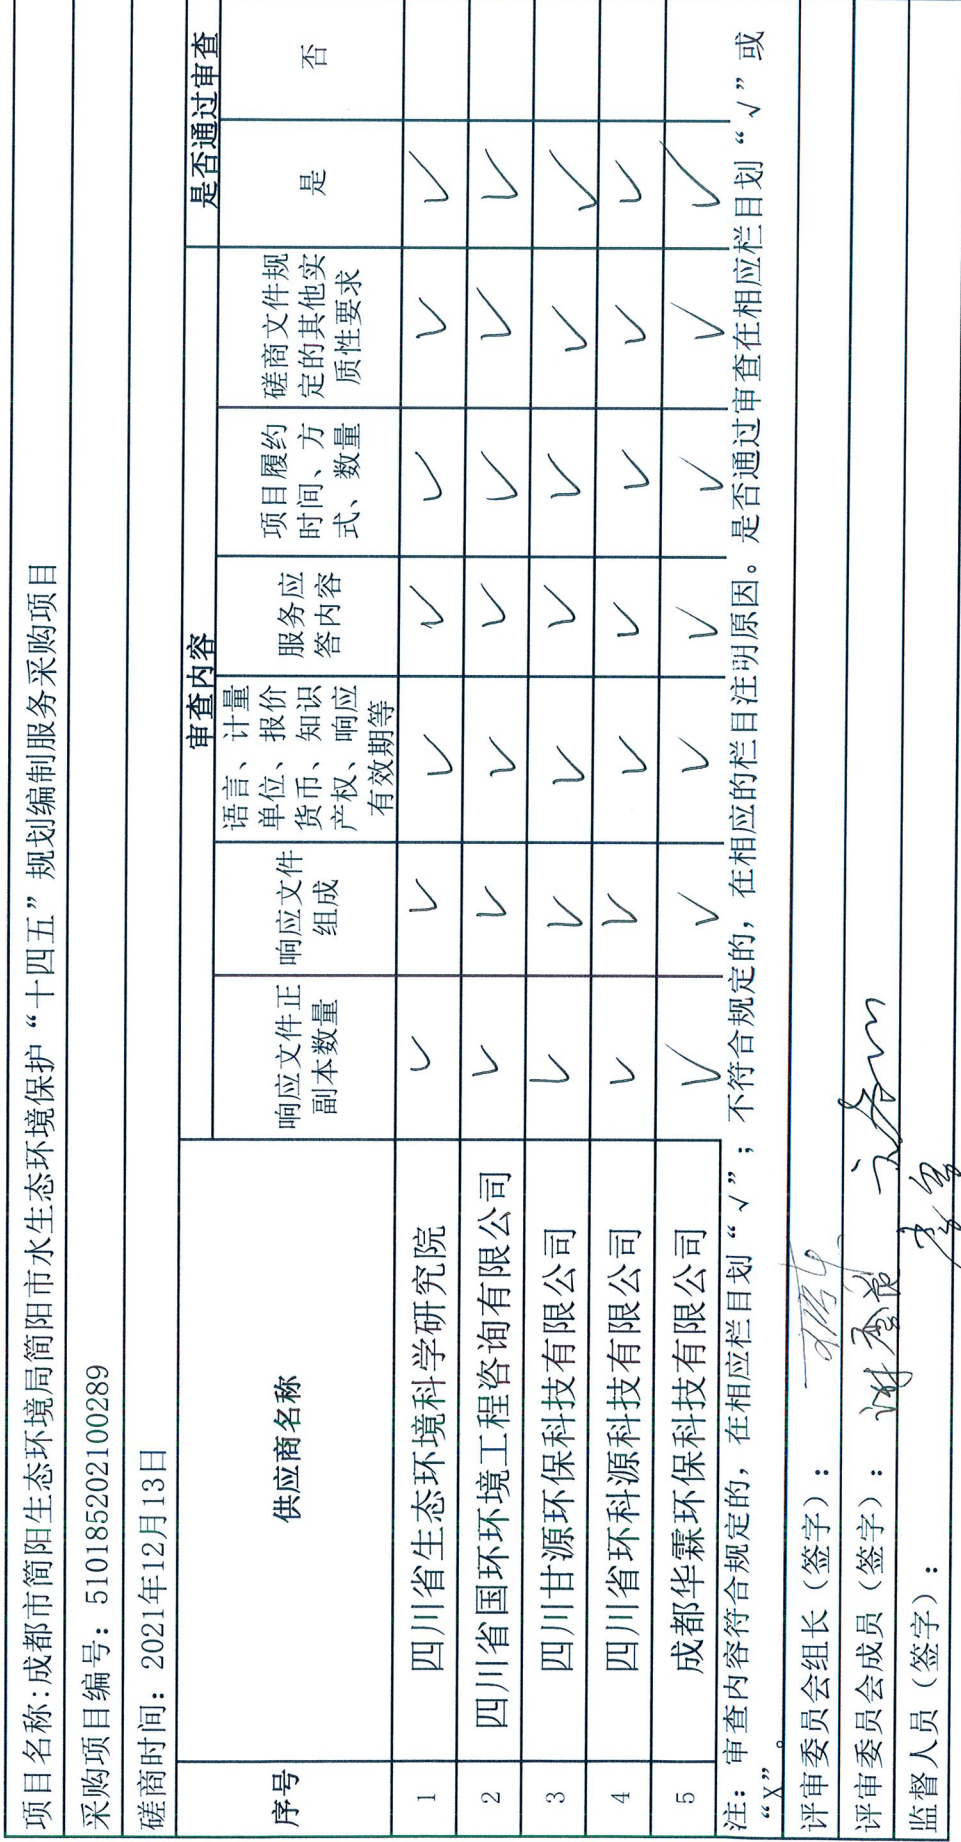 项目名称:成都市简阳生态环境局简阳市水生态环境保护“十四五”规划编制服务采购项目
采购项目编号: 510185202100289
磋商时间: 2021年12月13日
序号 供应商名称 审查内容 是否通过审查
响应文件正副本数量 响应文件组成 语言、计量单位、报价货币、知识产权、响应有效期等 服务应答内容 项目履约时间、方式、数量 磋商文件规定的其他实质性要求 是 否
1 四川省生态环境科学研究院 √ √ √ √ √ √ √
2 四川省国环环境工程咨询有限公司 √ √ √ √ √ √ √
3 四川甘源环保科技有限公司 √ √ √ √ √ √ √
4 四川省环科源科技有限公司 √ √ √ √ √ √ √
5 成都华霖环保科技有限公司 √ √ √ √ √ √ √
注: 审查内容符合规定的, 在相应栏目划“√”; 不符合规定的, 在相应的栏目注明原因。是否通过审查在相应栏目划“√”或
“X”。
评审委员会组长(签字):
评审委员会成员(签字):
监督人员(签字):